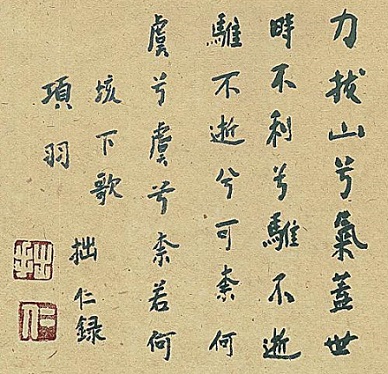 力拔山兮氣蓋世
時不利兮騅不逝
騅不逝兮可柰何
虞兮虞兮柰若何
垓下歌
項羽
拙仁録
拙
仁